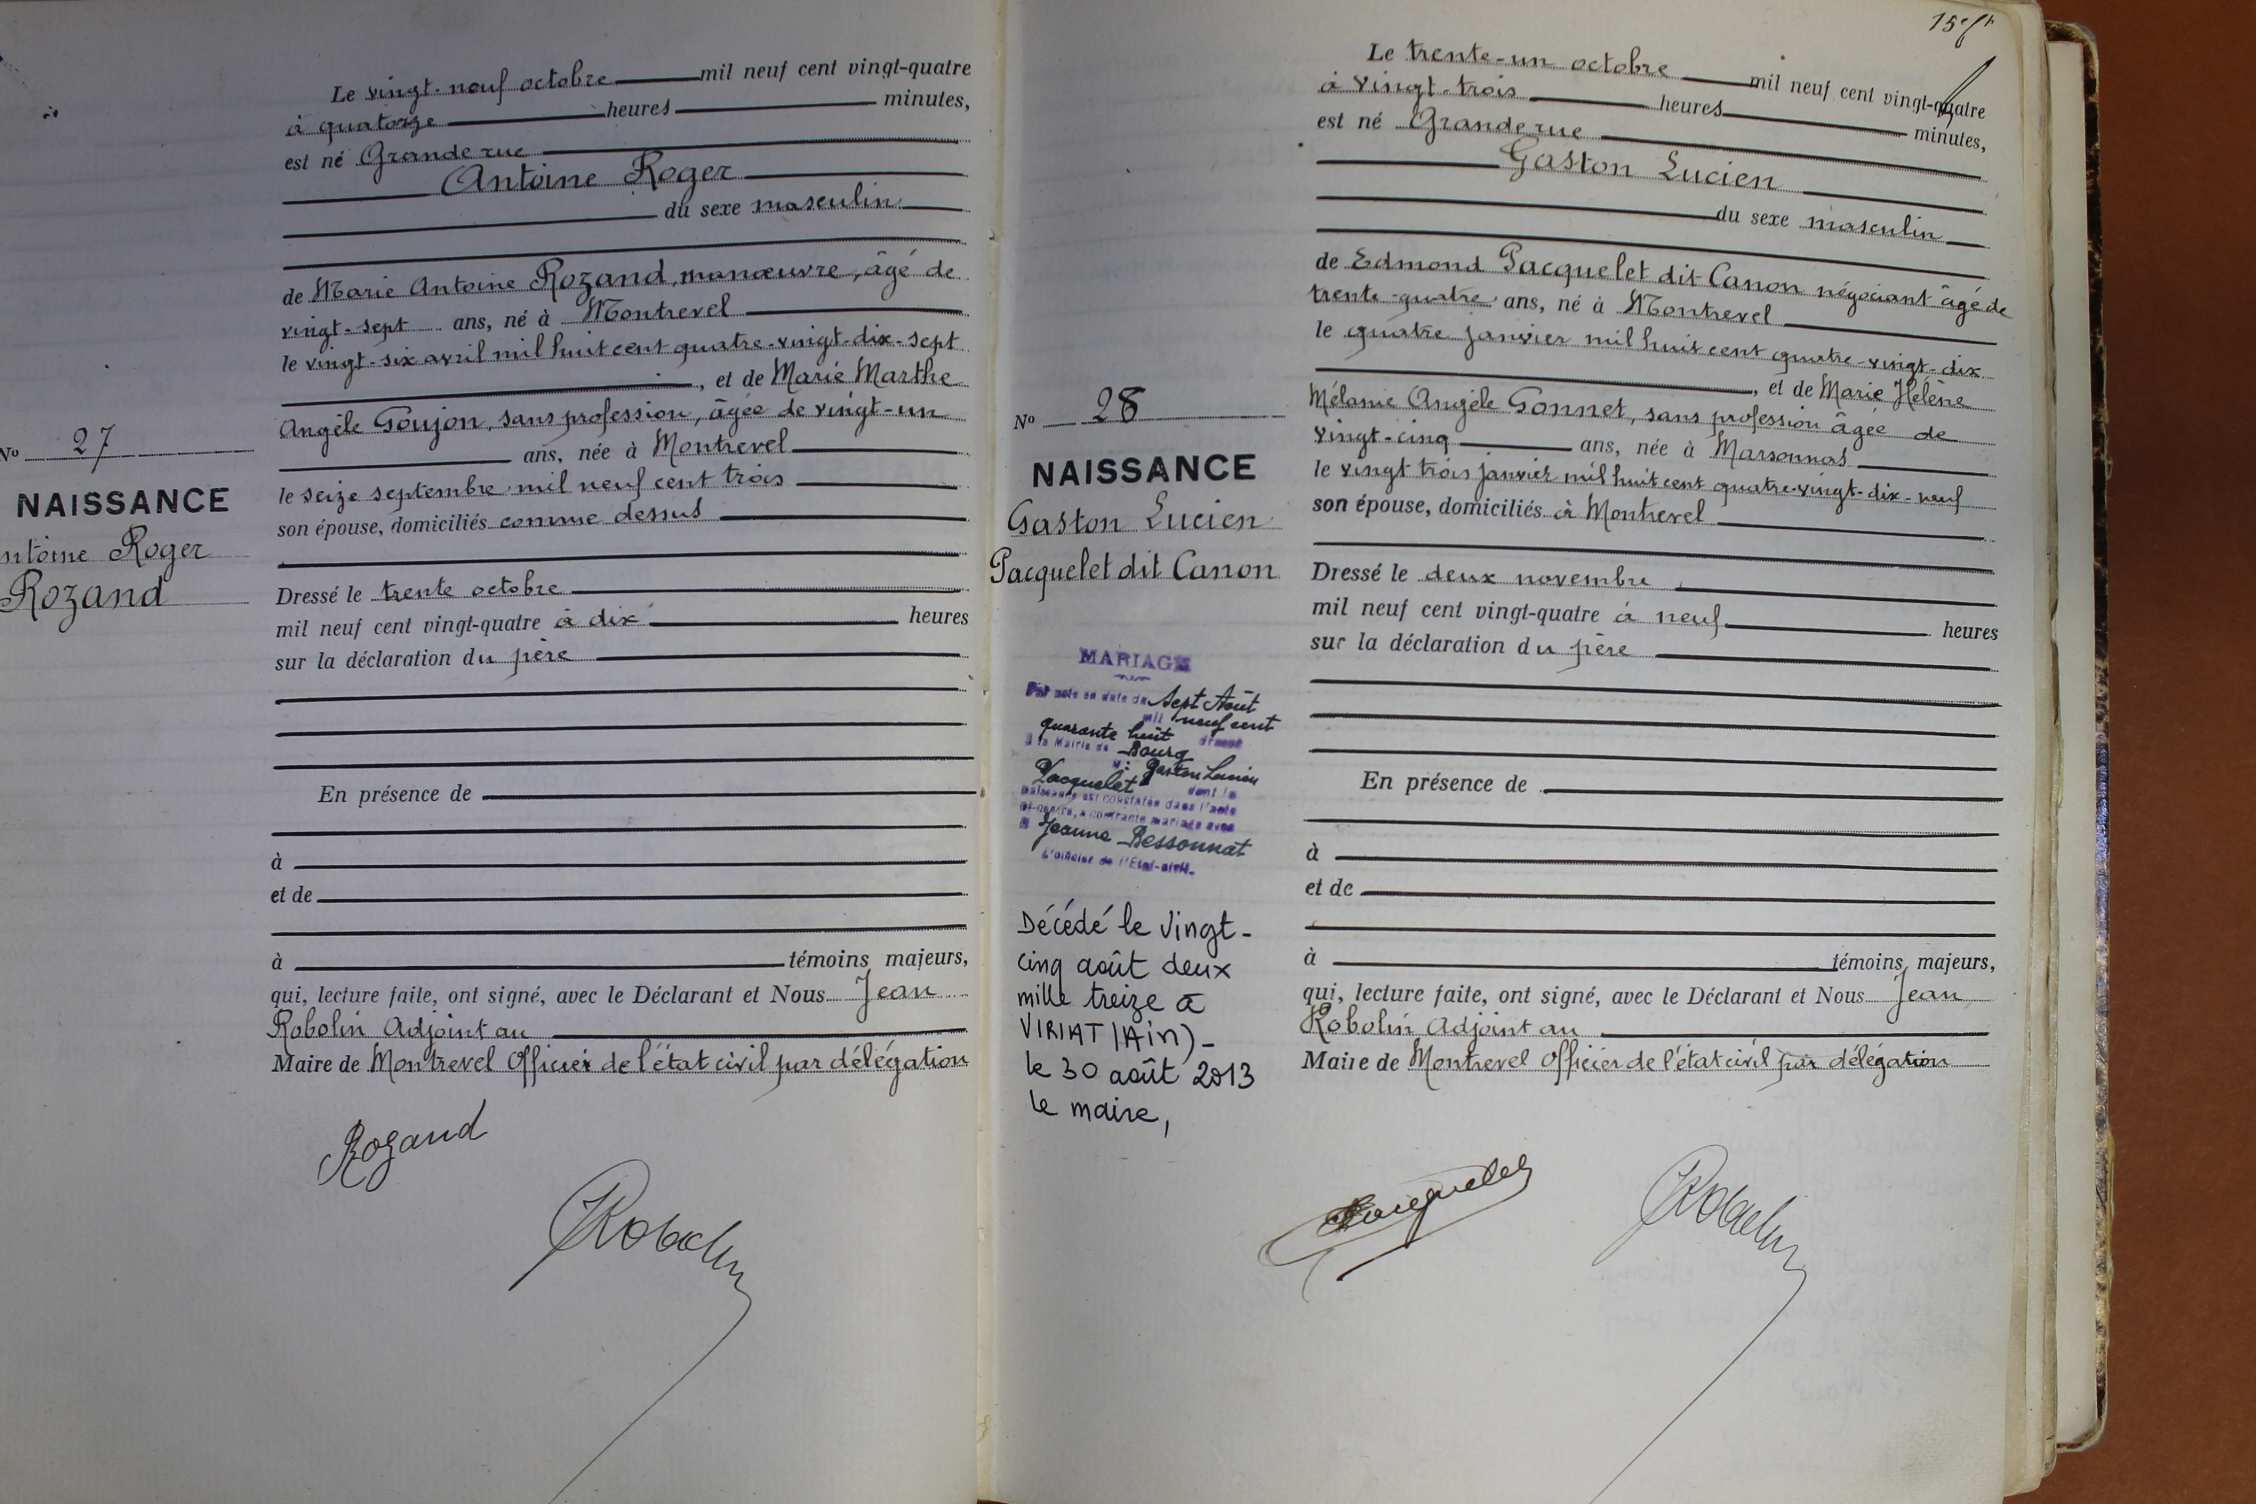 Le vingt-neuf octobre mil neuf cent vingt-quatre
à quatorze heures minutes,
est né Grande rue
Antoine Roger
du sexe masculin
de Marie Antoine Rozand, manœuvre, âgé de
vingt-sept ans, né à Montrevel
le vingt-six avril mil huit cent quatre-vingt-dix-sept
, et de Marie Marthe
Angèle Goujon, sans profession, âgée de vingt-un
ans, née à Montrevel
le seize septembre mil neuf cent trois
son épouse, domiciliés comme dessus
Dressé le trente octobre
mil neuf cent vingt-quatre à dix heures
sur la déclaration du père
En présence de
à
et de
à témoins majeurs,
qui, lecture faite, ont signé, avec le Déclarant et Nous Jean
Robolin Adjoint au
Maire de Montrevel Officier de l'état civil par délégation
Rozand
Robolin
No 27
NAISSANCE
ntoine Roger
Rozand
Le trente-un octobre mil neuf cent vingt-quatre
à vingt-trois heures minutes,
est né Grande rue
Gaston Lucien
du sexe masculin
de Edmond Pacquelet dit Canon négociant âgé de
trente-quatre ans, né à Montrevel
le quatre janvier mil huit cent quatre-vingt-dix
, et de Marie Hélène
Mélanie Angèle Gonnet, sans profession âgée de
vingt-cinq ans, née à Marsonnas
le vingt trois janvier mil huit cent quatre-vingt-dix-neuf
son épouse, domiciliés à Montrevel
Dressé le deux novembre
mil neuf cent vingt-quatre à neuf heures
sur la déclaration du père
En présence de
à
et de
à témoins majeurs,
qui, lecture faite, ont signé, avec le Déclarant et Nous Jean
Robolin Adjoint au
Maire de Montrevel Officier de l'état civil par délégation
Pacquelet
Robolin
No 28
NAISSANCE
Gaston Lucien
Pacquelet dit Canon
MARIAGE
Par acte en date du Sept Août
mil neuf cent
quarante huit dressé
à la Mairie de Bourg
M: Gaston Lucien
Pacquelet dont la
naissance est constatée dans l'acte
ci-contre, a contracté mariage avec
M Jeanne Bessonnat
L'officier de l'Etat-civil.
Décédé le vingt-
cinq août deux
mille treize à
VIRIAT (Ain)-
le 30 août 2013
le maire,